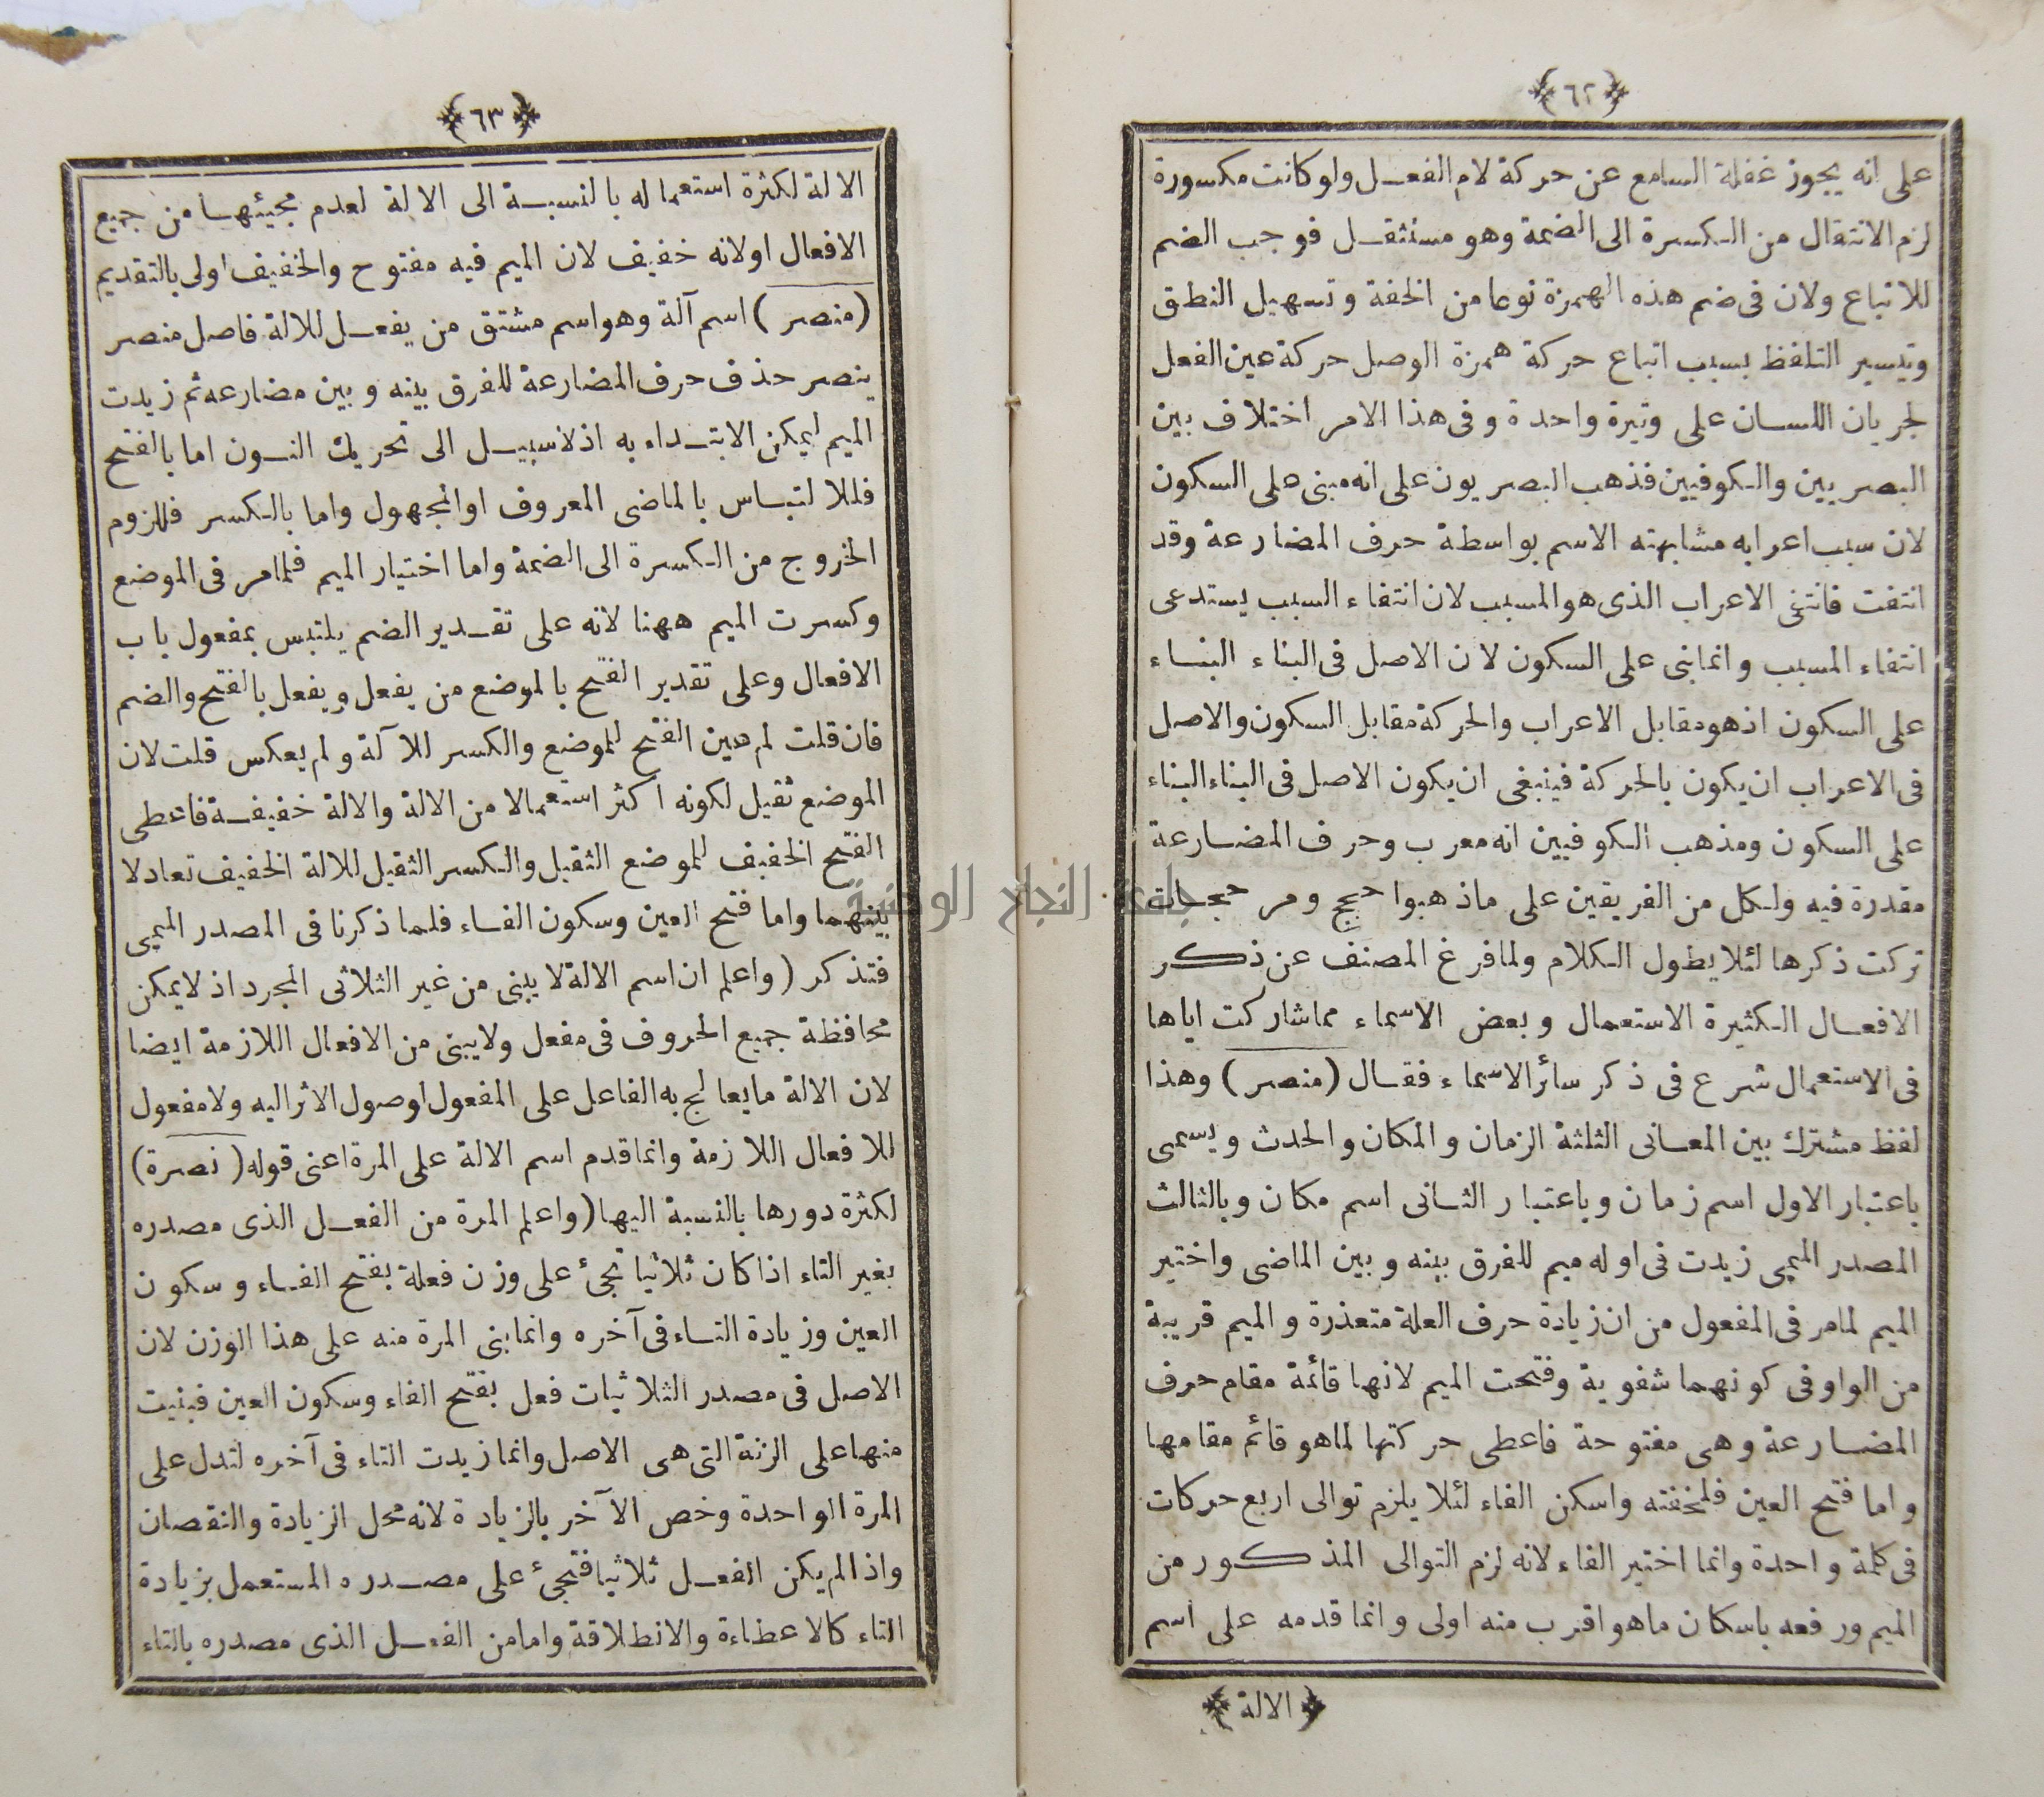 ﴿٦٢﴾
على انه يجوز غفلة السامع عن حركة لام الفعل ولو كانت مكسورة
لزم الانتقال من الكسرة الى الضمة وهو مستثقل فوجب الضم
للاتباع ولان فى ضم هذه الهمزة نوعا من الخفة وتسهيل النطق
وتيسير التلفظ بسبب اتباع حركة همزة الوصل حركة عين الفعل
لجريان اللسان على وتيرة واحدة وفى هذا الامر اختلاف بين
البصريين والكوفيين فذهب البصريون على انه مبنى على السكون
لان سبب اعرابه مشابهته الاسم بواسطة حرف المضارعة وقد
انتفت فانتفى الاعراب الذى هو المسبب لان انتفاء السبب يستدعى
انتفاء المسبب وانما بنى على السكون لان الاصل فى البناء البناء
على السكون اذ هو مقابل الاعراب والحركة مقابل السكون والاصل
فى الاعراب ان يكون بالحركة فينبغى ان يكون الاصل فى البناء البناء
على السكون ومذهب الكوفيين انه معرب وحرف المضارعة
مقدرة فيه ولكل من الفريقين على ماذهبوا حجج ومر حججاته
تركت ذكرها لئلا يطول الكلام ولما فرغ المصنف عن ذكر
الافعال الكثيرة الاستعمال وبعض الاسماء مما شاركت اياها
فى الاستعمال شرع فى ذكر سائر الاسماء فقال (منصر) وهذا
لفظ مشترك بين المعانى الثلثة الزمان والمكان والحدث ويسمى
باعتبار الاول اسم زمان وباعتبار الثانى اسم مكان وبالثالث
المصدر الميمى زيدت فى اوله ميم للفرق بينه وبين الماضى واختير
الميم لمامر فى المفعول من ان زيادة حرف العلة متعذرة والميم قريبة
من الواو فى كونهما شفوية وفتحت الميم لانها قائمة مقام حرف
المضارعة وهى مفتوحة فاعطى حركتها لماهو قائم مقامها
واما فتح العين فلخفته واسكن الفاء لئلا يلزم توالى اربع حركات
فى كلمة واحدة وانما اختير الفاء لانه لزم التوالى المذكور من
الميم ورفعه باسكان ماهو اقرب منه اولى وانما قدمه على اسم
﴿الالة﴾
﴿٦٣﴾
الالة لكثرة استعماله بالنسبة الى الالة لعدم مجيئها من جميع
الافعال اولانه خفيف لان الميم فيه مفتوح والخفيف اولى بالتقديم
(منصر) اسم آلة وهو اسم مشتق من يفعل للالة فاصل منصر
ينصر حذف حرف المضارعة للفرق بينه وبين مضارعه ثم زيدت
الميم ليمكن الابتداء به اذ لاسبيل الى تحريك النون اما بالفتح
فللالتباس بالماضى المعروف او المجهول واما بالكسر فللزوم
الخروج من الكسرة الى الضمة واما اختيار الميم فلمامر فى الموضع
وكسرت الميم ههنا لانه على تقدير الضم يلتبس بمفعول باب
الافعال وعلى تقدير الفتح بالموضع من يفعل ويفعل بالفتح والضم
فان قلت لم عين الفتح للموضع والكسر للآلة ولم يعكس قلت لان
الموضع ثقيل لكونه اكثر استعمالا من الالة والالة خفيفة فاعطى
الفتح الخفيف للموضع الثقيل والكسر الثقيل للالة الخفيف تعادلا
بينهما واما فتح العين وسكون الفاء فلما ذكرنا فى المصدر الميمى
فتذكر (واعلم ان اسم الالة لا يبنى من غير الثلاثى المجرد اذ لا يمكن
محافظة جميع الحروف فى مفعل ولا يبنى من الافعال اللازمة ايضا
لان الالة ما يعالج به الفاعل على المفعول لوصول الاثر اليه ولا مفعول
للافعال اللازمة وانما قدم اسم الالة على المرة اعنى قوله (نصرة)
لكثرة دورها بالنسبة اليها (واعلم المرة من الفعل الذى مصدره
بغير التاء اذا كان ثلاثيا تجئ على وزن فعلة بفتح الفاء وسكون
العين وزيادة التاء فى آخره وانما بنى المرة منه على هذا الوزن لان
الاصل فى مصدر الثلاثيات فعل بفتح الفاء وسكون العين فبنيت
منها على الزنة التى هى الاصل وانما زيدت التاء فى آخره لتدل على
المرة الواحدة وخص الآخر بالزيادة لانه محل الزيادة والنقصان
واذا لم يكن الفعل ثلاثيا فتجئ على مصدره المستعمل بزيادة
التاء كالاعطاءة والانطلاقة واما من الفعل الذى مصدره بالتاء
جامعة النجاح الوطنية